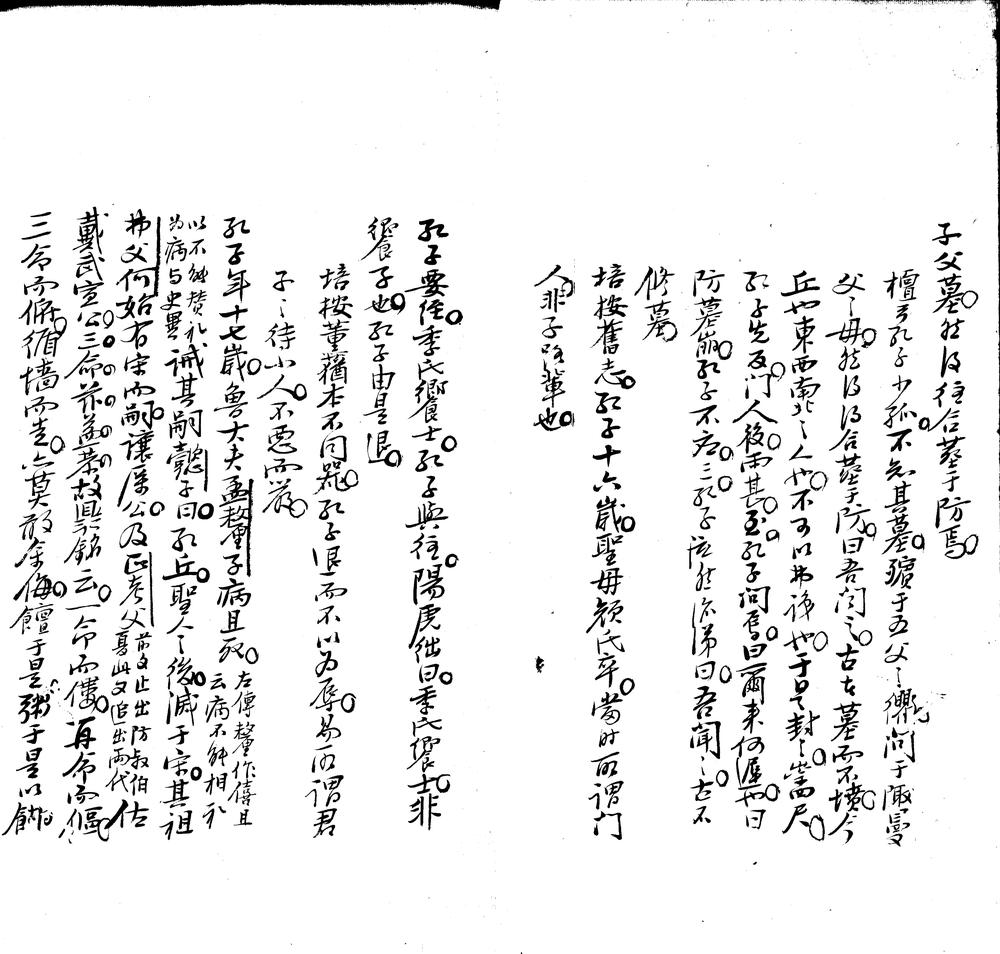 子父墓。然後往合葬于防焉。
檀弓孔子少孤。不知其墓。殯于五父之衢。問于陬曼
父之母。然後得合葬于防。曰吾聞之。古者墓而不墳。今
丘也東西南北之人也。不可以弗識也。于是封之。崇四尺。
孔子先反。門人後。雨甚。至。孔子問焉。曰爾來何遲也。曰
防墓崩。孔子不應。三。孔子泫然流涕曰。吾聞之。古不
修墓。
培按舊志。孔子十六歲。聖母顏氏卒。當時所謂門
人。非子路輩也。
孔子要绖。季氏饗士。孔子與往。陽虎绌曰。季氏饗士。非
饗子也。孔子由是退。
培按董蕕本不同器。孔子退而不以為辱。易所謂君
子之待小人。不惡而嚴。
孔子年十七歲。魯大夫孟釐子病且死。左傳釐作僖且云病不能相礼
以不能贊礼為病与史異誡其嗣懿子曰。孔丘。聖人之後。滅于宋。其祖
弗父何始有宋而嗣讓厲公。及正考父前文止出防叔伯夏此又追出兩代佐
戴武宣公。三命茲益恭。故鼎銘云。一命而僂。再命而傴。
三命而俯。循墻而走。亦莫敢余侮。饘于是。粥于是。以餬